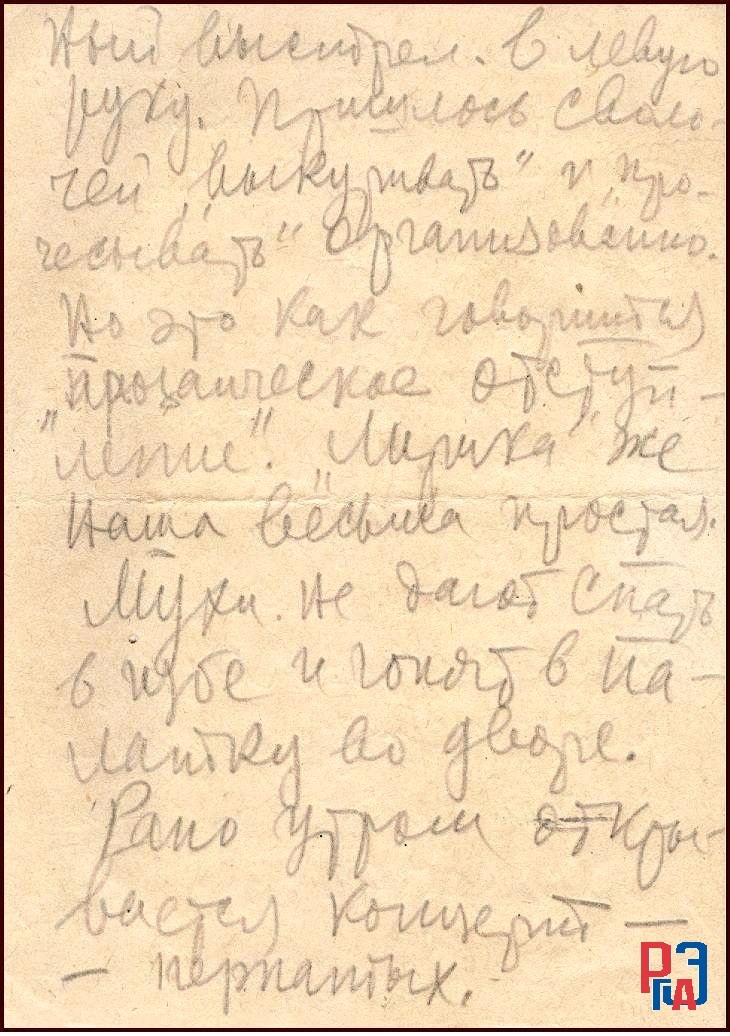 ный выстрел. в левую
руку. Пришлось сволo-
чей „выкуривать" и „про-
чесывать" организованно.
Но это как говорится
прозаическое отступ-
"ление". „Лирика" же
наша весьма простая.
Мухи. не дают спать
в избе и гонят в па-
латку во дворе.
Рано утром откры-
вается концерт —
— пернатых.
РГАЭ